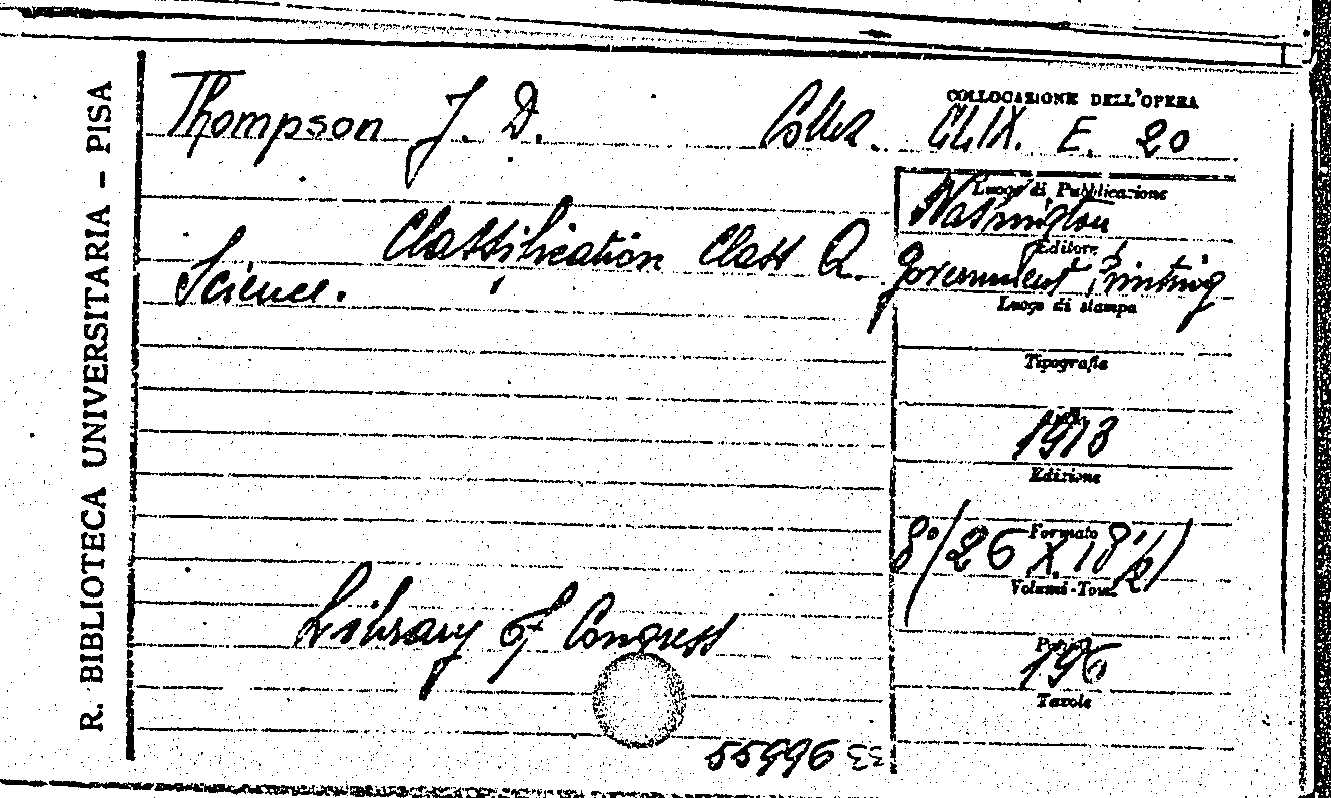 R. BIBLIOTECA UNIVERSITARIA - PISA
Thompson J. D.
COLLOCAZIONE DELL'OPERA
Collez. CLIX. E. 20
Luogo di Pubblicazione
Washington
Classification Class Q.
Science.
Editore
Government Printing
Luogo di stampa
Tipografia
1913
Edizione
Formato
8°(26 X 18 1/2)
Volumi-Tomi
Library of Congress
196
Tavole